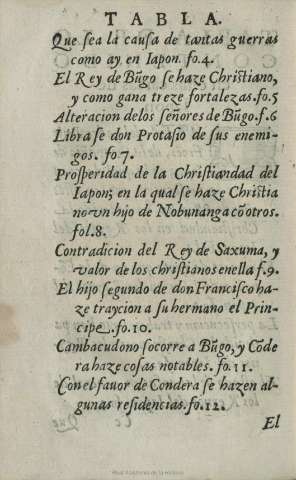 TABLA.
Que sea la causa de tantas guerras
como ay en Iapon. fo.4.
El Rey de Bũgo se haze Christiano,
y como gana treze fortalezas. fo.5
Alteracion delos señores de Bũgo. f.6
Librase don Protasio de sus enemi-
gos. fo 7.
Prosperidad de la Christiandad del
Iapon; en la qual se haze Christia
no vn hijo de Nobunanga cõ otros.
fol.8.
Contradicion del Rey de Saxuma, y
valor de los christianos enella f.9.
El hijo segundo de don Francisco ha-
ze traycion a su hermano el Prin-
cipe. fo.10.
Cambacudono socorre a Bũgo, y Cõde
ra haze cosas notables. fo.11.
Con el fauor de Condera se hazen al-
gunas residencias. fo.12.
El
Real Academia de la Historia